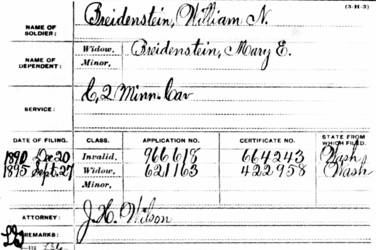 (3-H-3)
NAME OF SOLDIER: Breidenstein, William N.
NAME OF DEPENDENT: Widow, Breidenstein, Mary E.
Minor,
SERVICE: C, 2 Minn. Cav
DATE OF FILING. CLASS. APPLICATION NO. CERTIFICATE NO. STATE FROM WHICH FILED.
1890 Dec 20 Invalid, 966618 664243 Wash
1895 Sept. 27 Widow, 621163 422958 Wash
Minor,
ATTORNEY: J. H. Wilson
REMARKS: